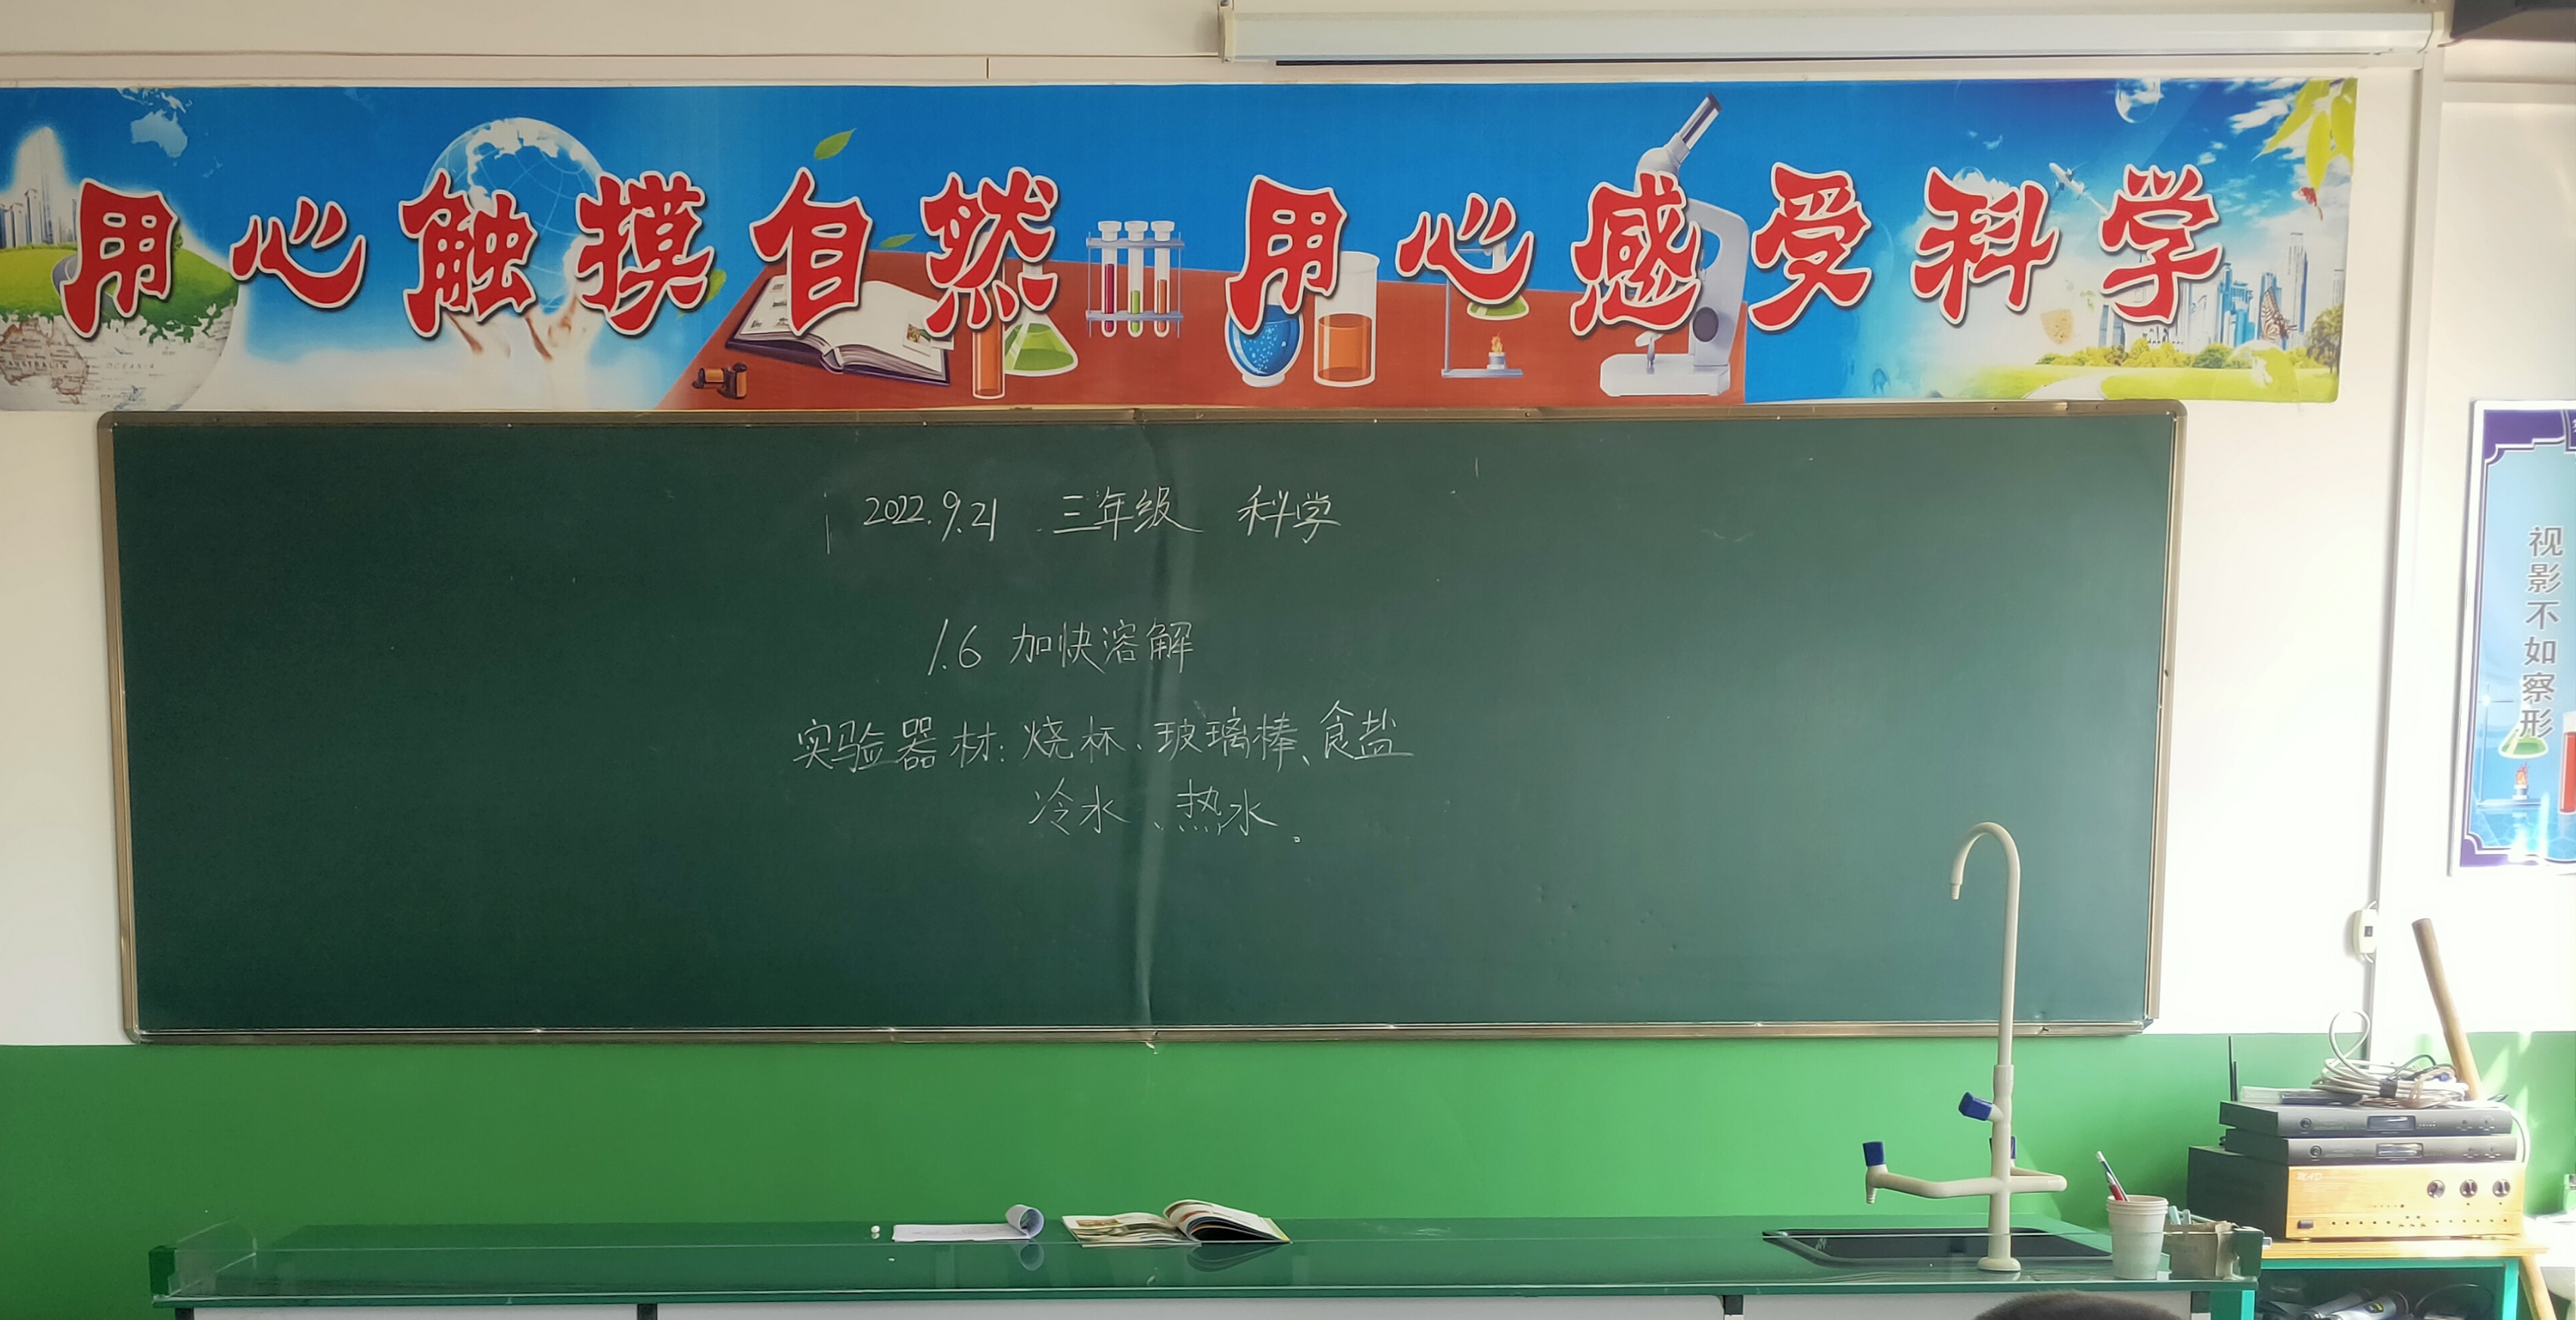 用心触摸自然 用心感受科学
2022.9.21 三年级 科学
1.6 加快溶解
实验器材：烧杯、玻璃棒、食盐
冷水、热水。
视影不如察形